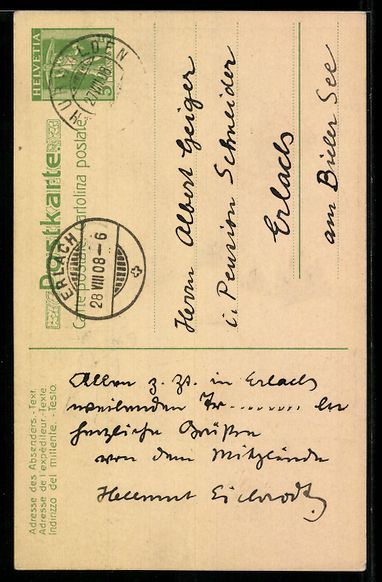 HELVETIA
5
27 VIII 08
Postkarte.
Carte postale. Cartolina postale.
ERLACH
28 VIII 08–6
Herrn Albert Geiger
i. Pension Schneider
Erlach
am Bieler See
Adresse des Absenders.-Text.
Adresse de l'expéditeur.-Texte.
Indirizzo del mittente.-Testo.
Allen z. Zt. in Erlach
weilenden Fr......... ler
herzliche Grüßen
von dem
Hellmut Eichrodt